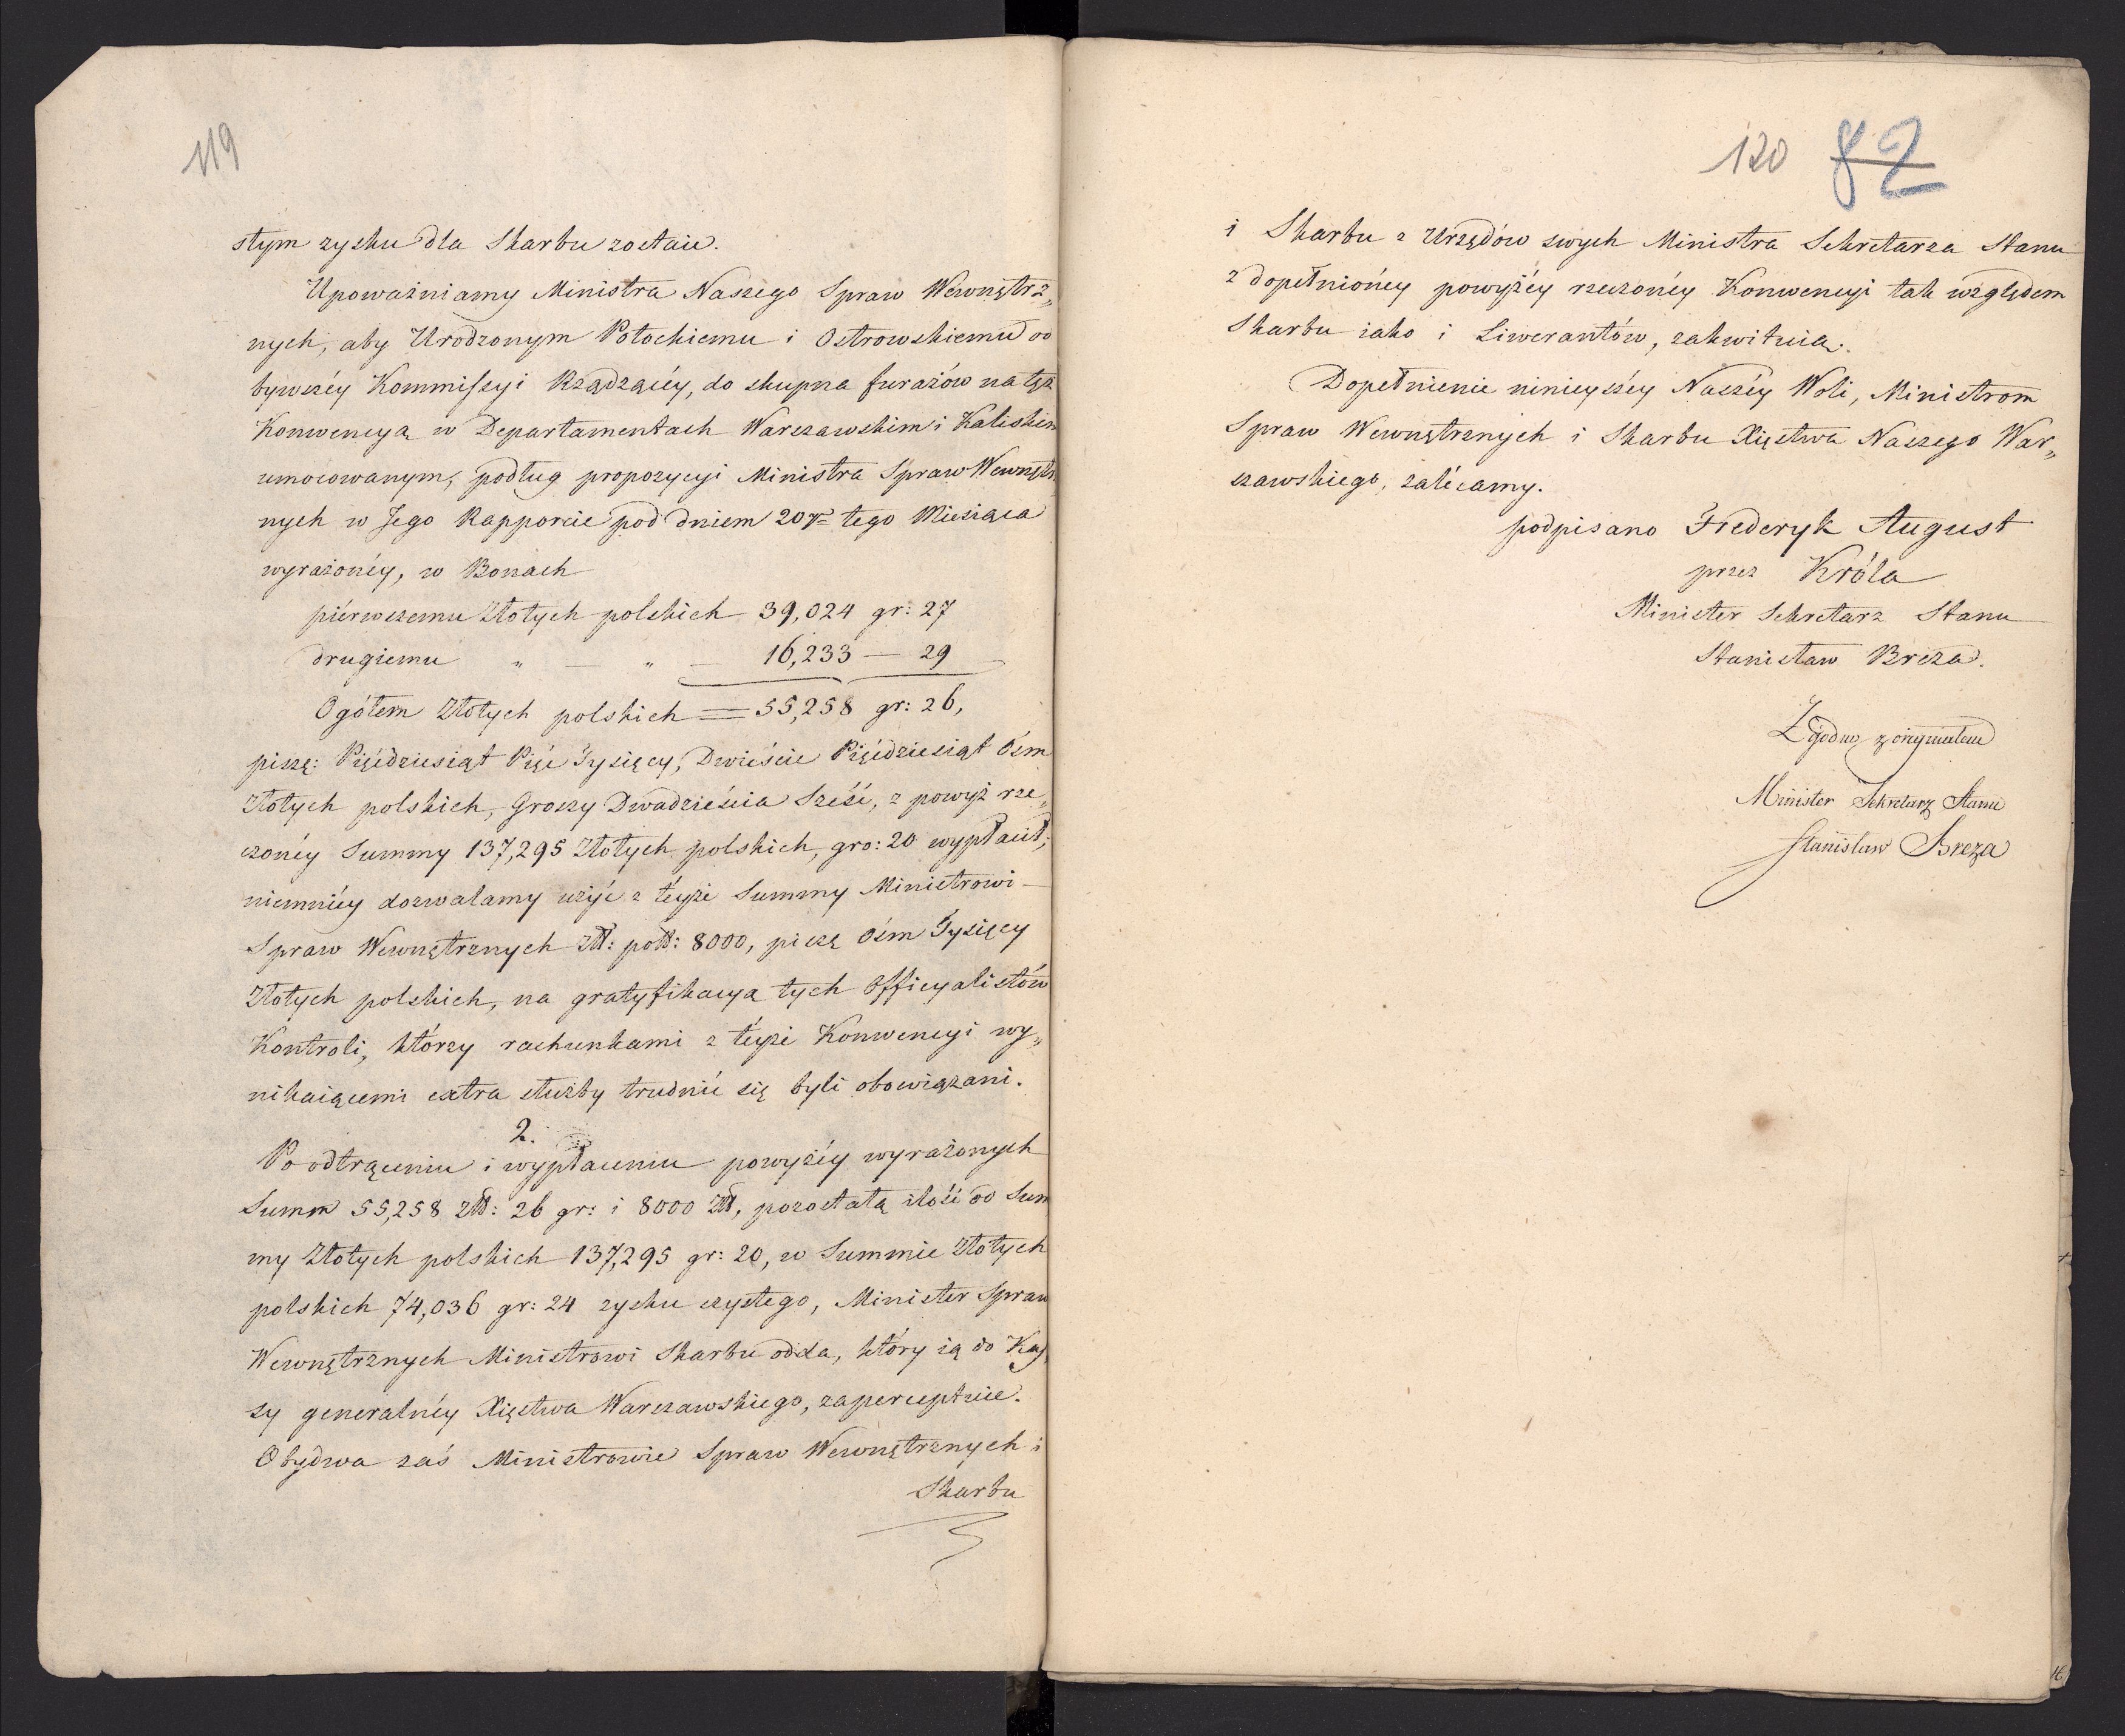 119
stym zysku dla Skarbu zostaie.
Upoważniamy Ministra Naszego Spraw Wewnętrz„
nych, aby Urodzonym Potockiemu i Ostrowskiemu od
bywszéy Kommissyi Rządzącéy, do skupna furażów na tęż
Konwencyą w Departamentach Warszawskim i Kaliskim
umocowanym, podług propozycyi Ministra Spraw Wewnętrz
nych w Jego Rapporcie pod dniem 20go tego Miesiąca
wyrażonéy, w Bonach
piérwszemu Złotych polskich 39,024 gr: 27
drugiemu „ — „ — 16,233 — 29
Ogółem Złotych polskich = 55,258 gr: 26,
piszę: Pięćdziesiąt Pięć Tysięcy, Dwieście Pięćdziesiąt Ośm
Złotych polskich, Groszy Dwadzieścia Sześć, z powyż rze„
czonéy Summy 137,295 Złotych polskich, gro: 20 wypłacił;
niemniéy dozwalamy użyć z téyże Summy Ministrowi
Spraw Wewnętrznych Złł: poll: 8000, piszę Ośm Tysięcy
Złotych polskich, na gratyfikacyą tych Officyalistów
Kontroli, którzy rachunkami z téyże Konwencyi wy„
nikaiącemi extra służby trudnić się byli obowiązani.
2.
Po odtrąceniu i wypłaceniu powyżéy wyrażonych
Summ 55,258 złł: 26 gr: i 8000 Złł, pozostałą ilość od Sum
my Złotych polskich 137,295 gr: 20, w Summie Złotych
polskich 74,036 gr: 24 zysku czystego, Minister Spraw
Wewnętrznych Ministrowi Skarbu odda, który ią do Kas
sy generalnéy Xięstwa Warszawskiego, zaperceptuie.
Obydwa zaś Ministrowie Spraw Wewnętrznych i
Skarbu
120 82
i Skarbu z Urzędów swych Ministra Sekretarza Stanu
z dopełnionéy powyżéy rzeczonéy Konwencyi tak względem
Skarbu iako i Liwerantów, zakwituią.
Dopełnienie ninieyszéy Naszéy Woli, Ministrom
Spraw Wewnętrznych i Skarbu Xięstwa Naszego War„
szawskiego, zalécamy.
podpisano Frederyk August
przez Króla
Minister Sekretarz Stanu
Stanisław Breza.
Zgodno z oryginałem
Minister Sekretarz Stanu
Stanisław Breza